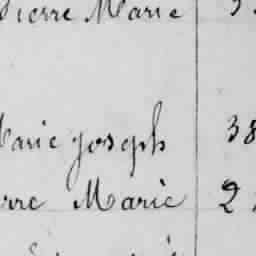 Pierre Marie
Marie joseph 38
erre Marie 2